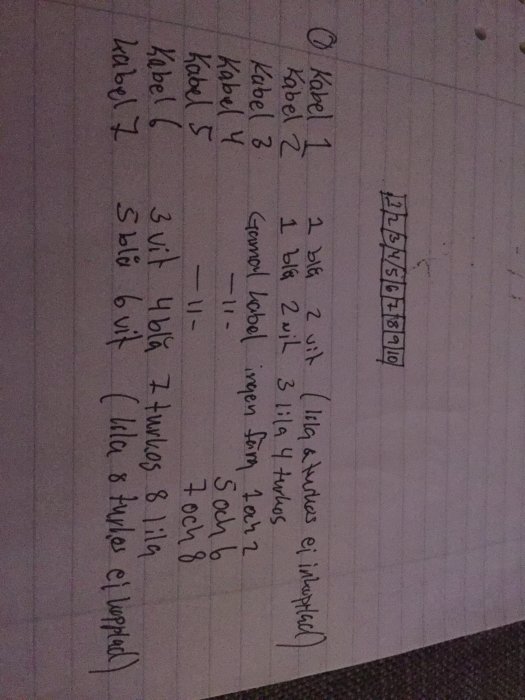 1 2 3 4 5 6 7 8 9 10
① Kabel 1 1 blå 2 vit (lila & turkos ej inkopplad)
Kabel 2 1 blå 2 vit 3 lila 4 turkos
Kabel 3 Gamal kabel ingen färg 1 och 2
Kabel 4 —11- 5 och 6
Kabel 5 —11- 7 och 8
Kabel 6 3 vit 4 blå 7 turkos 8 lila
Kabel 7 5 blå 6 vit (lila & turkos ej kopplad)